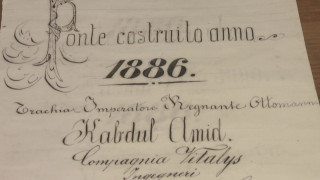 Ponte costruito anno
1886.
Trachia Imperatore Regnante Ottomanno
Kabdul Amid.
Compagnia Vitalys
Ingegneri